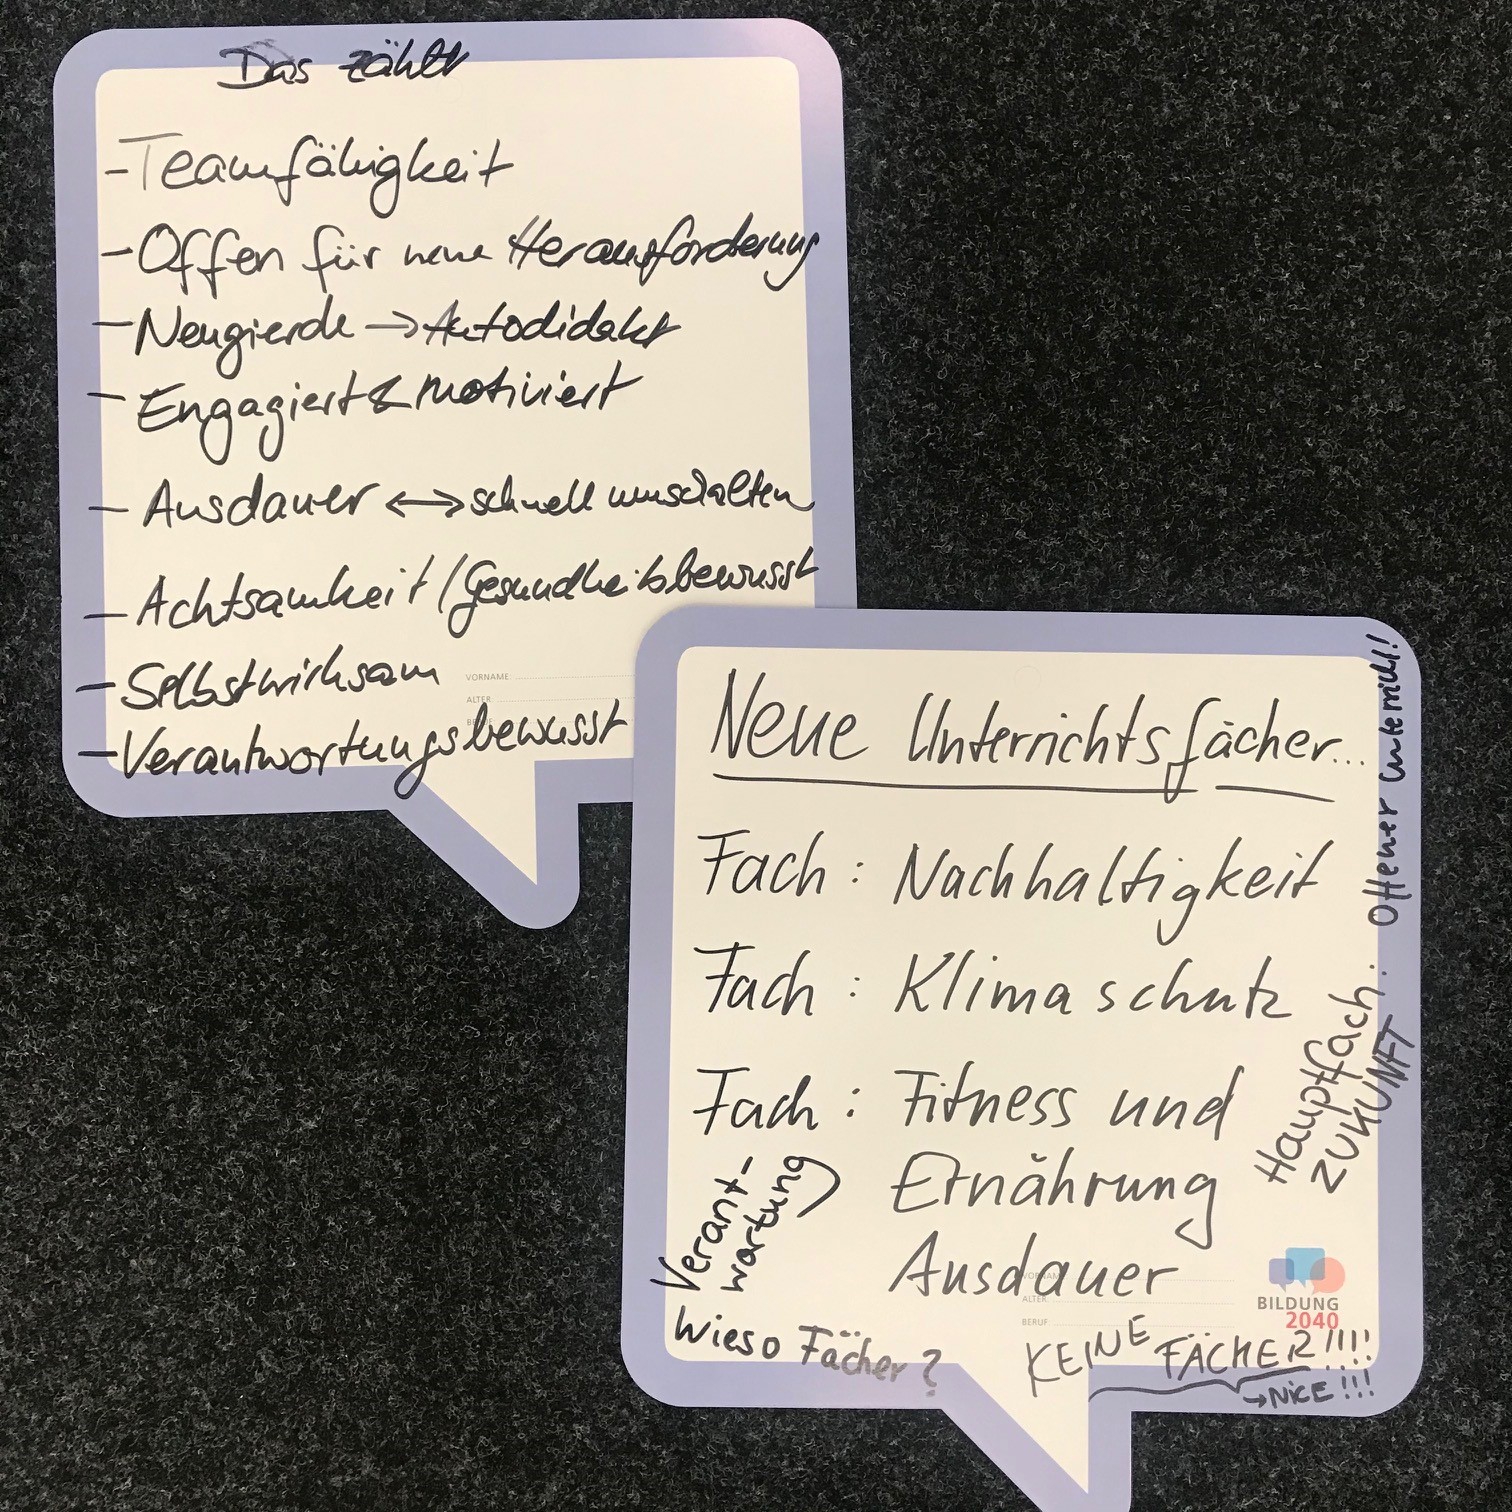 Das zählt
- Teamfähigkeit
- Offen für neue Herausforderung
- Neugierde → Autodidakt
- Engagiert & motiviert
- Ausdauer ↔ schnell umschalten
- Achtsamkeit / Gesundheitsbewusst
- Selbstwirksam
- Verantwortungsbewusst
VORNAME:
ALTER
Neue Unterrichtsfächer...
Fach : Nachhaltigkeit
Fach : Klimaschutz
Fach : Fitness und
Ernährung
Ausdauer
Verant-
wortung
Wieso Fächer?
Offener Unterricht!
Hauptfach:
ZUKUNFT
ALTER
BERUF
BILDUNG
2040
KEINE FÄCHER!!!!
→ NICE!!!